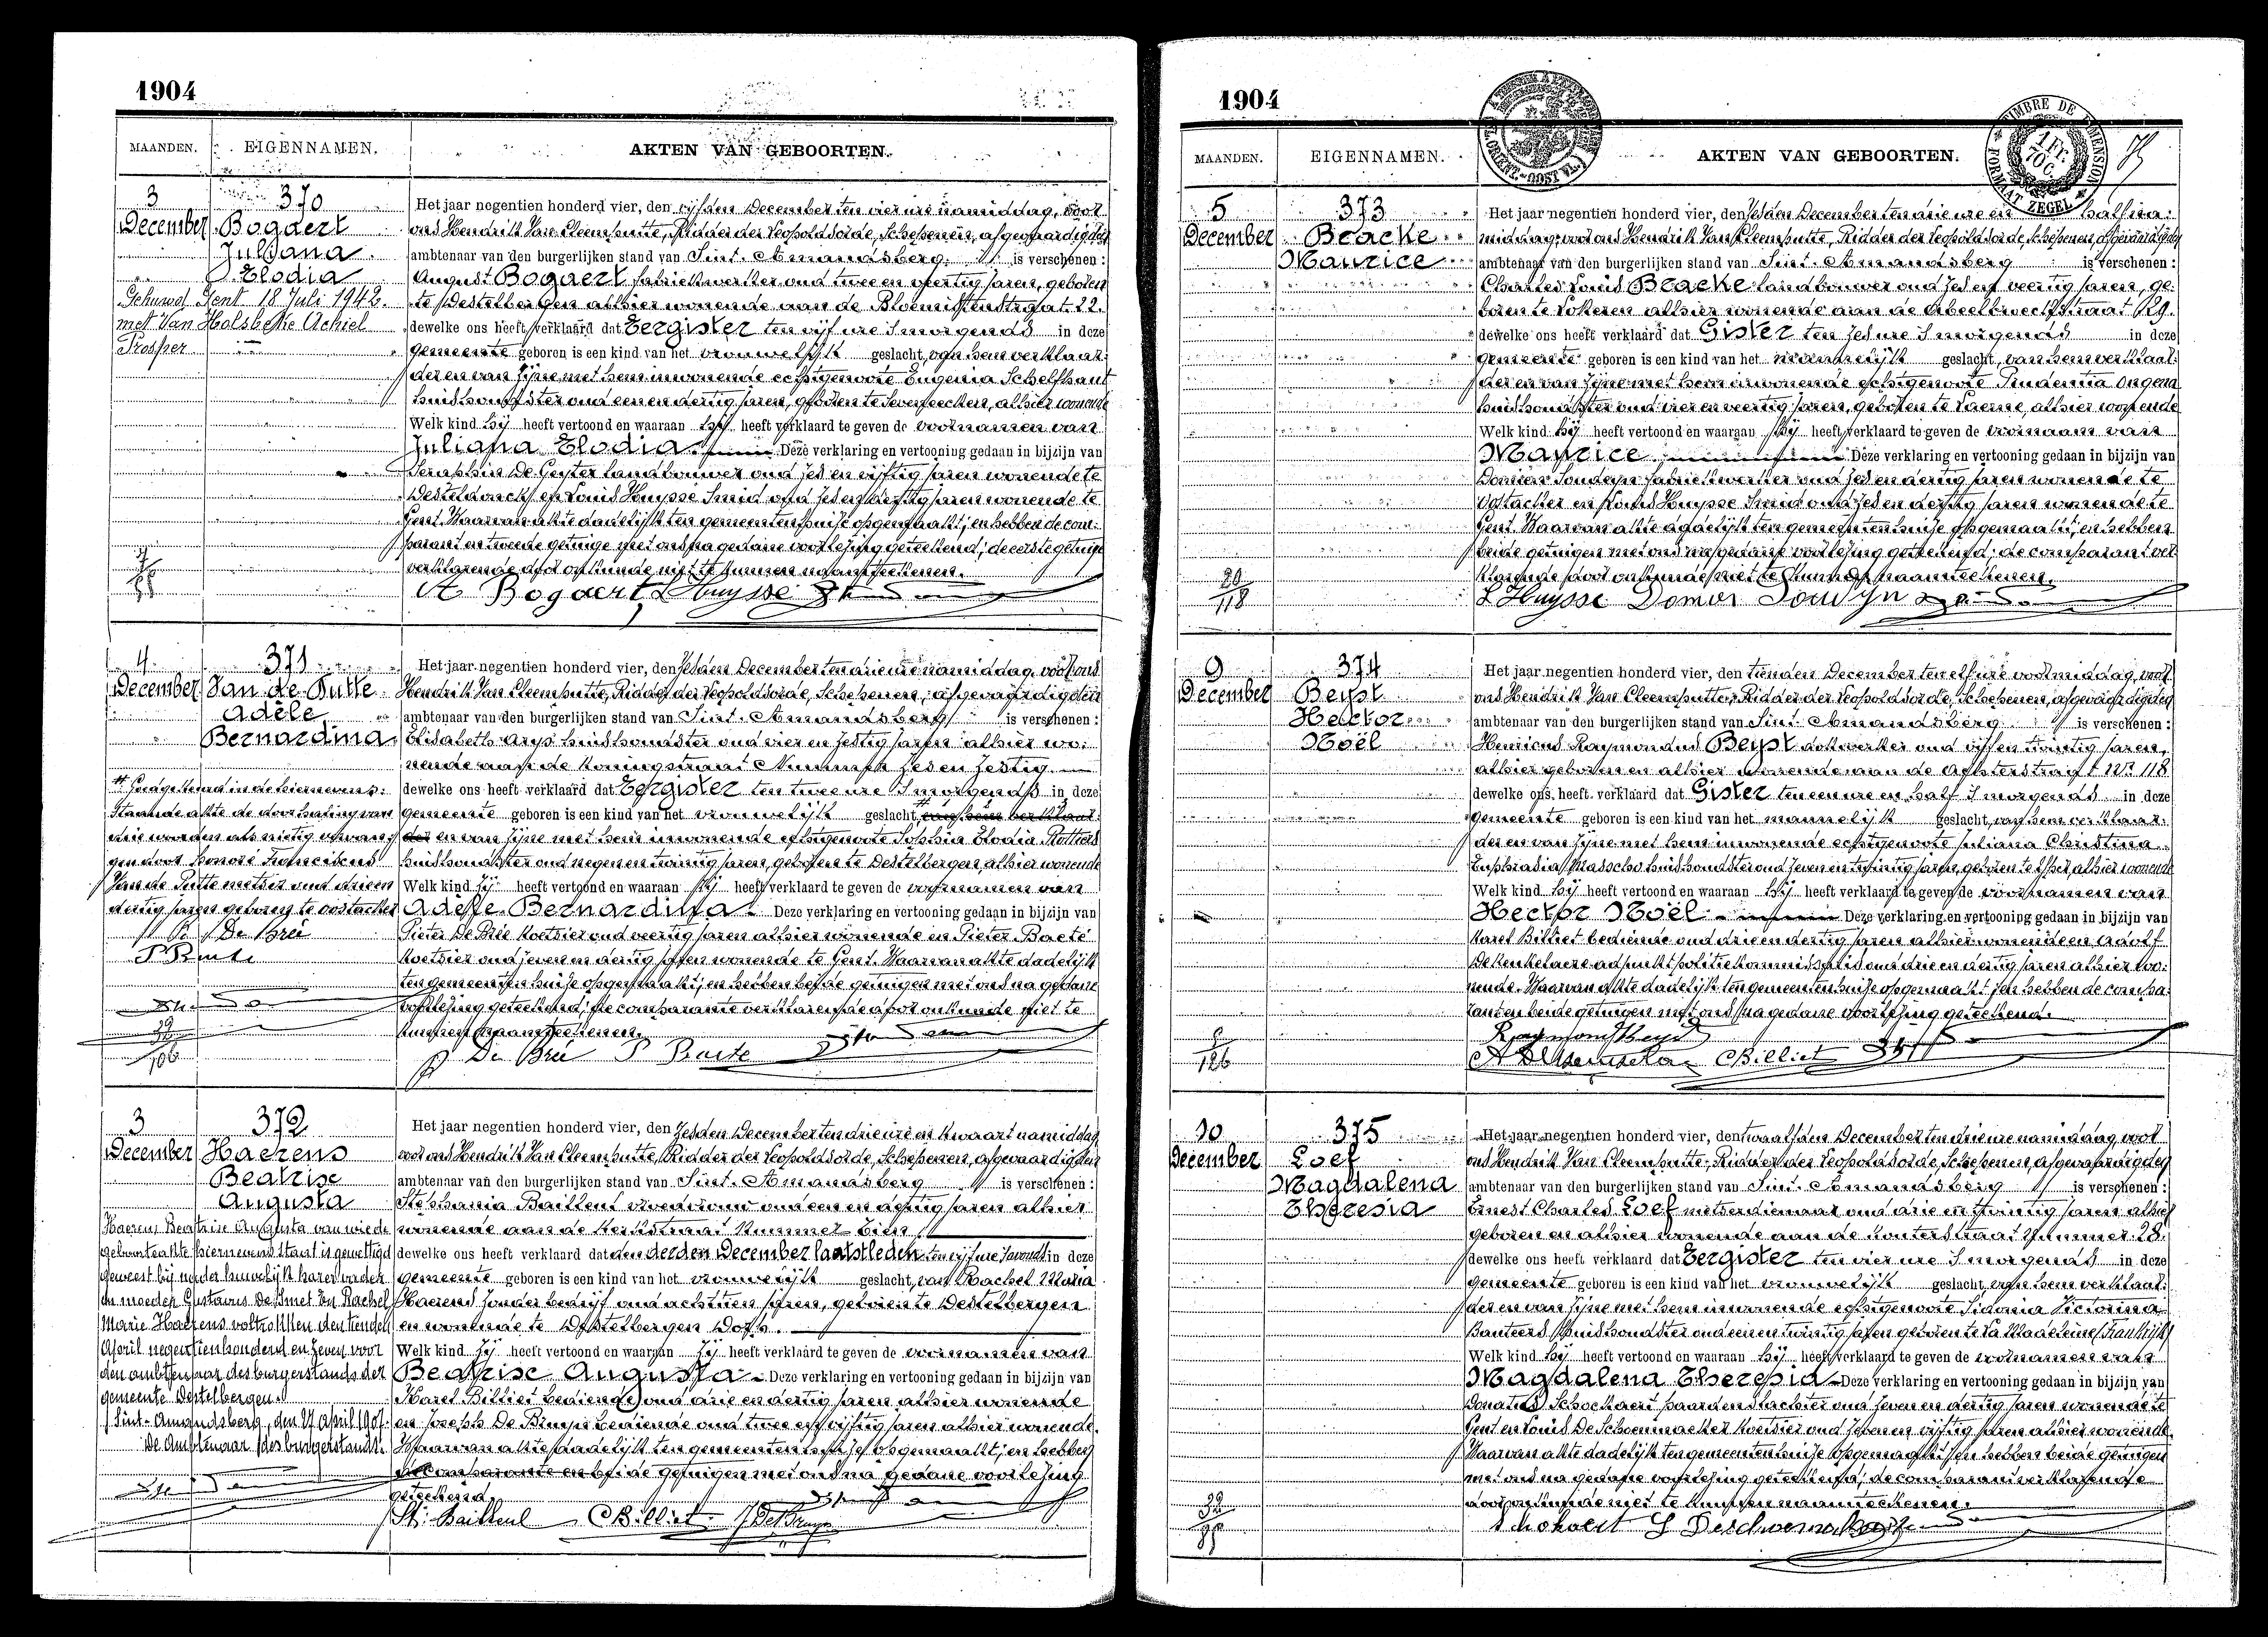 1904
MAANDEN. EIGENNAMEN. AKTEN VAN GEBOORTEN.
3 December
370
Bogaert
Juliana
Elodia
Gehuwd Gent 18 Juli 1942
met Van Holsbeke Achiel
Prosper
Het jaar negentien honderd vier, den vijfden December ten vier ure namiddag, voor
ons Hendrik Van Cleemputte, Ridder der Leopoldsorde, Schepenen, afgevaardigden
ambtenaar van den burgerlijken stand van Sint-Amandsberg is verschenen:
August Bogaert fabriekwerker oud twee en veertig jaren, geboren
te Destelbergen alhier wonende aan de Bloemistenstraat 22.
dewelke ons heeft verklaard dat Eergister ten vijf ure 's morgends in deze
gemeente geboren is een kind van het vrouwelijk geslacht, van hem verklaar-
der en van zijne met hem inwonende echtgenoote Eugenia Schelfhaut
huishoudster oud een en dertig jaren, geboren te Seveneecken, alhier wonende
Welk kind hij heeft vertoond en waaraan hij heeft verklaard te geven de voornamen van
Juliana Elodia. Deze verklaring en vertooning gedaan in bijzijn van
Seraphin De Geyter landbouwer oud zes en vijftig jaren wonende te
Desteldonck en Louis Huysse Smid oud zes en dertig jaren wonende te
Gent. Waarvan akte dadelijk ten gemeentenhuize opgemaakt; en hebben de com-
parant en tweede getuige met ons na gedane voorlezing geteekend; de eerste getuige
verklarende door onkunde niet te kunnen naamteekenen.
A Bogaert L Huysse
4 December
371
Van de Putte
Adèle
Bernardina
Het jaar negentien honderd vier, den zesden December ten drie ure namiddag, voor ons
Hendrik Van Cleemputte, Ridder der Leopoldsorde, Schepenen, afgevaardigden
ambtenaar van den burgerlijken stand van Sint-Amandsberg is verschenen:
Elisabeth Arys huishoudster oud vier en zestig jaren alhier wo-
nende aan de Koningstraat Nummer zes en zestig.
dewelke ons heeft verklaard dat Eergister ten twee ure 's morgends in deze
gemeente geboren is een kind van het vrouwelijk geslacht, van hem verklaar-
der en van zijne met hem inwonende echtgenoote Sophia Elodia Rottiers
huishoudster oud negen en twintig jaren, geboren te Destelbergen, alhier wonende
Welk kind zij heeft vertoond en waaraan zij heeft verklaard te geven de voornamen van
Adèle Bernardina. Deze verklaring en vertooning gedaan in bijzijn van
Pieter De Brée Koetsier oud veertig jaren alhier wonende en Pieter Baeté
Koetsier oud zeven en dertig jaren wonende te Gent. Waarvan akte dadelijk
ten gemeentenhuize opgemaakt; en hebben beide getuigen met ons na gedane
voorlezing geteekend; de comparante verklarende door onkunde niet te
kunnen naamteekenen.
P De Brée P Baete
van Honoré Franciscus
Van de Putte metser oud drie en
dertig jaren geboren te Oostacker
P De Brée
P Baete
3 December
372
Haerens
Beatrise
Augusta
Haerens Beatrise Augusta van wiede
geboorteakte hiernevens staat is gewettigd
geweest bij nader huwelijk harer vader
en moeder Gustavus De Smet en Rachel
Marie Haerens voltrokken den tienden
April negentienhonderd en zeven voor
den ambtenaar des burgerstands der
gemeente Destelbergen.
Sint-Amandsberg, den 27 April 1907.
De Ambtenaar des burgerstands.
Het jaar negentien honderd vier, den zesden December ten drie ure en kwaart namiddag
voor ons Hendrik Van Cleemputte, Ridder der Leopoldsorde, Schepenen, afgevaardigden
ambtenaar van den burgerlijken stand van Sint-Amandsberg is verschenen:
Stephania Bailleul vroedvrouw oud een en dertig jaren alhier
wonende aan de Kerkstraat Nummer tien
dewelke ons heeft verklaard dat den derden December laatstleden ten vijf ure 's avonds in deze
gemeente geboren is een kind van het vrouwelijk geslacht, van Rachel Maria
Haerens zonder bedrijf oud achttien jaren, geboren te Destelbergen
en wonende te Destelbergen Dorp.
Welk kind zij heeft vertoond en waaraan zij heeft verklaard te geven de voornamen van
Beatrise Augusta. Deze verklaring en vertooning gedaan in bijzijn van
Karel Billiet bediende oud drie en dertig jaren alhier wonende
en Joseph De Bruyn bediende oud twee en vijftig jaren alhier wonende.
Waarvan akte dadelijk ten gemeentenhuize opgemaakt; en hebben
de comparante en beide getuigen met ons na gedane voorlezing
geteekend.
St. Bailleul CBilliet J De Bruyn
1904
MAANDEN. EIGENNAMEN. AKTEN VAN GEBOORTEN.
TIMBRE DE DIMENSION
FORMAAT ZEGEL
5 December
373
Bracke
Maurice
Het jaar negentien honderd vier, den zesden December ten drie ure en half na-
middag, voor ons Hendrik Van Cleemputte, Ridder der Leopoldsorde, Schepenen, afgevaardigden
ambtenaar van den burgerlijken stand van Sint-Amandsberg is verschenen:
Charles Louis Bracke landbouwer oud zes en veertig jaren, ge-
boren te Lokeren alhier wonende aan de Abeelbroeckstraat 129.
dewelke ons heeft verklaard dat Gister ten zes ure 's morgends in deze
gemeente geboren is een kind van het mannelijk geslacht, van hem verklaar-
der en van zijne met hem inwonende echtgenoote Prudentia Ongena
huishoudster oud vier en veertig jaren, geboren te Laerne, alhier wonende
Welk kind hij heeft vertoond en waaraan hij heeft verklaard te geven de voornaam van
Maurice Deze verklaring en vertooning gedaan in bijzijn van
fabriekwerker oud zes en dertig jaren wonende te
Oostacker en Louis Huysse Smid oud zes en dertig jaren wonende te
Gent. Waarvan akte dadelijk ten gemeentenhuize opgemaakt; en hebben
beide getuigen met ons na gedane voorlezing geteekend; de comparant ver-
klarende door onkunde niet te kunnen naamteekenen.
L Huysse
20
118
9 December
374
Beyst
Hector
Noël
Het jaar negentien honderd vier, den tienden December ten elf ure voormiddag, voor
ons Hendrik Van Cleemputte, Ridder der Leopoldsorde, Schepenen, afgevaardigden
ambtenaar van den burgerlijken stand van Sint-Amandsberg is verschenen:
Henricus Raymondus Beyst dokwerker oud vijf en twintig jaren,
alhier geboren en alhier wonende aan de Achterstraat Nr. 118
dewelke ons heeft verklaard dat Gister ten een ure en half 's morgends in deze
gemeente geboren is een kind van het mannelijk geslacht, van hem verklaar-
der en van zijne met hem inwonende echtgenoote Juliana Christina
Euphrasia Masscho huishoudster oud zeven en twintig jaren, geboren te alhier wonende
Welk kind hij heeft vertoond en waaraan hij heeft verklaard te geven de voornamen van
Hector Noël Deze verklaring en vertooning gedaan in bijzijn van
Karel Billiet bediende oud drie en dertig jaren alhier wonende en Adolf
De Keukelaere adjunkt politiekommissaris oud drie en dertig jaren alhier wo-
nende. Waarvan akte dadelijk ten gemeentenhuize opgemaakt; en hebben de compa-
rant en beide getuigen met ons na gedane voorlezing geteekend.
Raymond Beyst
CBilliet
126
10 December
375
Loef
Magdalena
Theresia
Het jaar negentien honderd vier, den twaalfden December ten drie ure namiddag, voor
ons Hendrik Van Cleemputte, Ridder der Leopoldsorde, Schepenen, afgevaardigden
ambtenaar van den burgerlijken stand van Sint-Amandsberg is verschenen:
Ernest Charles Loef metserdienaar oud drie en twintig jaren alhier
geboren en alhier wonende aan de Nummer 28.
dewelke ons heeft verklaard dat Eergister ten vier ure 's morgends in deze
gemeente geboren is een kind van het vrouwelijk geslacht, van hem verklaar-
der en van zijne met hem inwonende echtgenoote Sidonia Victorina
Banteers huishoudster oud een en twintig jaren geboren te La Madeleine (Frankrijk)
Welk kind hij heeft vertoond en waaraan hij heeft verklaard te geven de voornamen van
Magdalena Theresia Deze verklaring en vertooning gedaan in bijzijn van
Donatus Schockaert oud zeven en dertig jaren wonende te
Gent en Louis De Schoenmacker Koetsier oud zes en vijftig jaren alhier wonende.
Waarvan akte dadelijk ten gemeentenhuize opgemaakt; en hebben beide getuigen
met ons na gedane voorlezing geteekend; de comparant verklarende
door onkunde niet te kunnen naamteekenen.